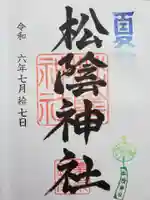 夏
松陰神社
令和
六年七月拾七日